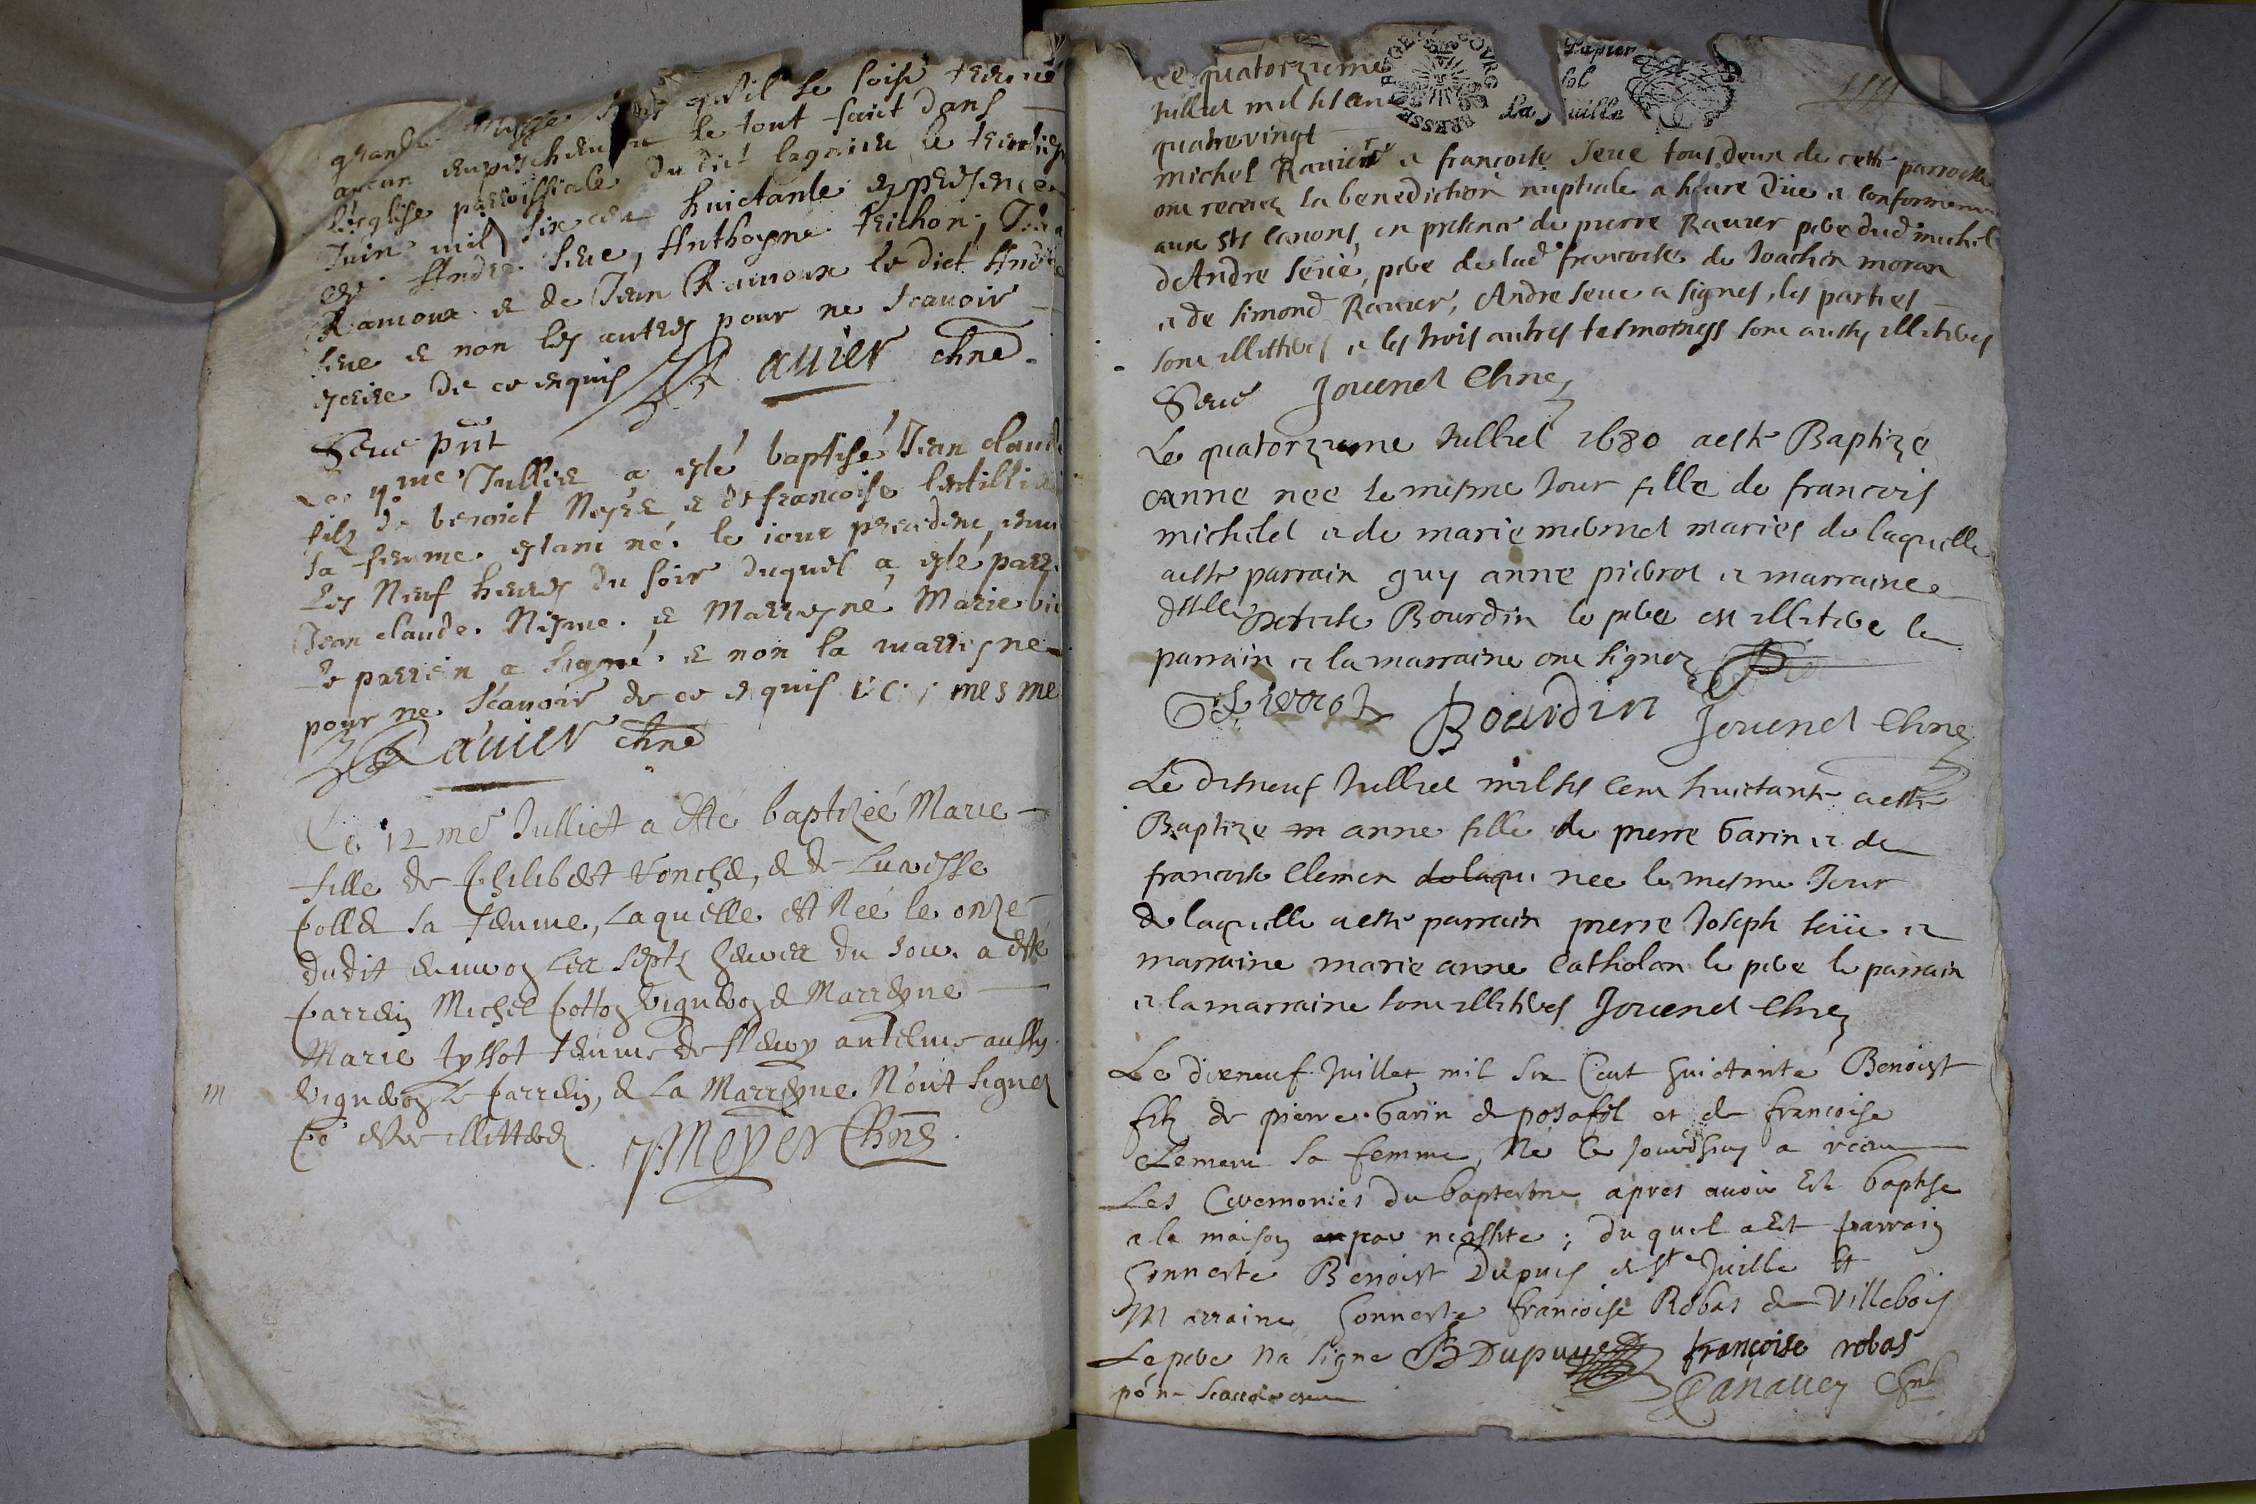 grande Messe sans qu'il se soise treuué
aucun enpeschement le tout faict dans
l'esglise parroissiale du dict lagnieu le
Juin mil six cen huictante en presence
de Andre Seue, Anthoyne trichon,
Ramoux & de Jean Ramoux le dict André
Seue & non les autres pour ne scauoir
escrire de ce enquis Rauier chne
Seue pnt
Le me Jullie a esté baptisé Jean claude
filz de benoict & de francoise
sa femme estant né le iour precedent enui
les neuf heures du soir duquel a esté parr
Jean claude & Marrayne Marie
le parrein a signé & non la marrayne
pour ne scauoir de ce enquis mesme
Rauier chne
Ce 12me Julliet a esté baptizéé Marie
fille de philibert & de Luaisse
sa femme, laquelle est néé le onze
dudit enuiron les sept heures du soir a esté
parrein Michel vigneron & Marreyne
Marie tyssot femme de antelme aussy
m vigneron le parrein, & la Marreyne N'ont signez
pr estre illitterez Meyer Chne
Le quatorzieme
Juillet mil six cen
quatre vingt
Papier
sol
la feuille
michel Rauier & francoise Seue tous deux de cette parroisse
ont receuz la benediction nuptiale a heure düe & conformeme
aux sts canons, en presence de pierre Rauier pere dud michel
d'Andre Seue, pere de lad francoise de Joachin moran
& de simond Rauier, Andre seue a signes, les parties
sont illitteres & les trois autres tesmoings sont aussy illiteres
Seue Jouenet Chne
Le quatorzieme Julliet 1680 a este Baptizé
anne nee le mesme Jour fille de francois
michelet & de marie mermet mariés de laquelle
a este parrain guy anne pierrot & marraine
dslle Bourdin le pere est illitere le
parrain & la marraine ont signez
Pierrot Bourdin Jouenet Chne
Le disneuf Julliet mil six cent huictante a este
Baptize anne fille de pierre Garin & de
francoise Clemen de laqu nee le mesme Jour
de laquelle a este parrain pierre Joseph seüe &
marraine marie anne Catholan le pere le parrain
& la marraine sont illiteres Jouenet Chne
Le dixneuf Juillet mil six Cent huictante Benoist
filz de pierre Garin de posafol et de francoise
Clement sa femme, Né ce Jourdhuy a receu
Les Ceremonies du baptesme apres auoir Esté baptise
a la maison par necessite; du quel a Est parrain
honneste Benoist Dupuis de St Juille &
Marraine honneste francoise Robas de Villebois
Le pere Na signe B Dupuys françoise robas
po ne scauoir Canauey Chne